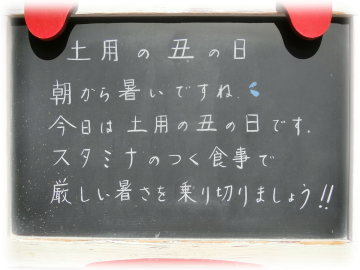 土用の丑の日
朝から暑いですね.
今日は土用の丑の日です.
スタミナのつく食事で
厳しい暑さを乗り切りましょう!!